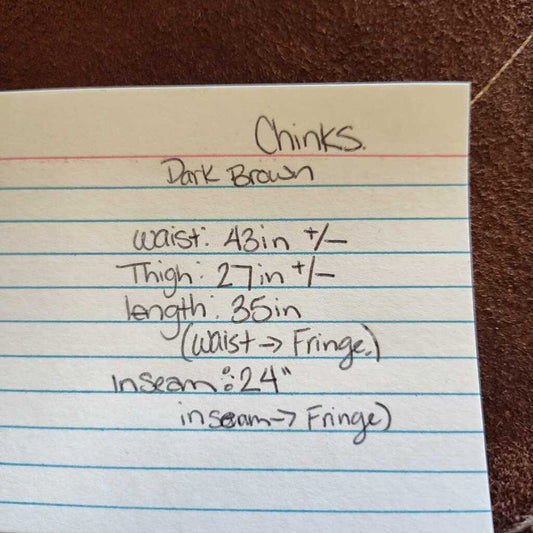 Chinks.
Dark Brown
waist: 43in +/-
Thigh: 27in +/-
length: 35in
(waist → Fringe.)
Inseam: 24"
inseam → Fringe)